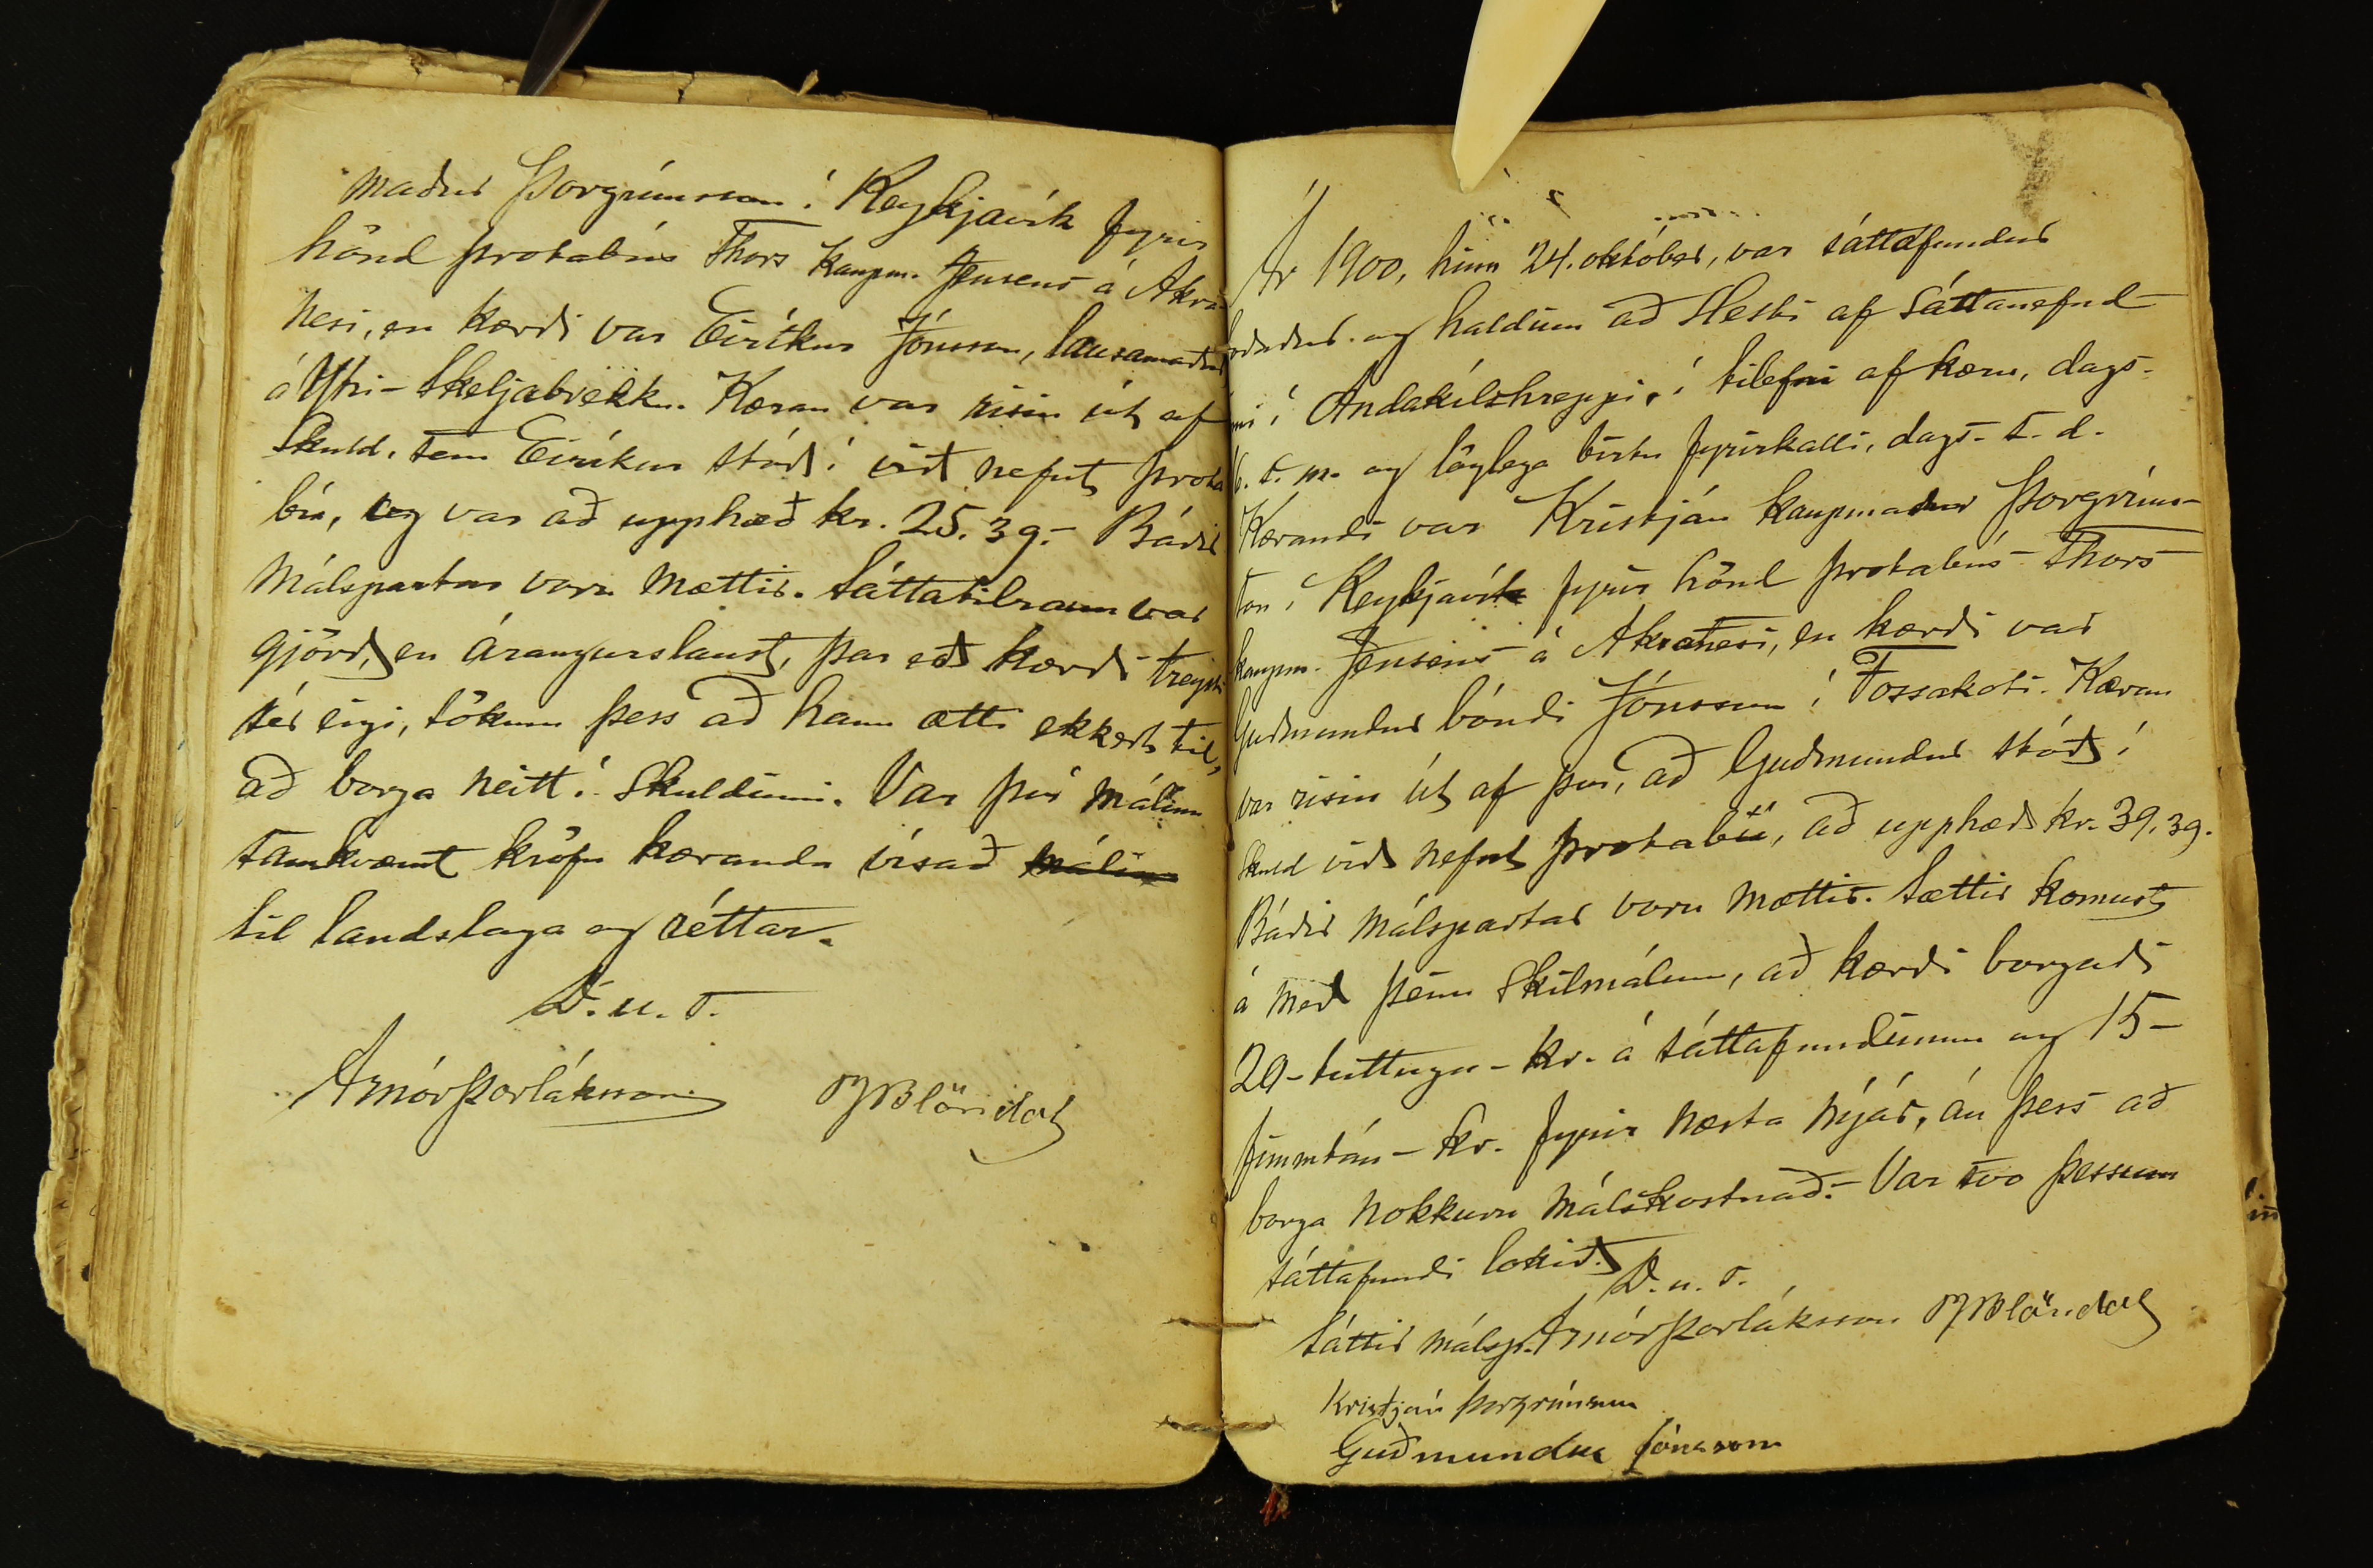 maður Þorgrímsson í Reykjavík fyrir
hönd þrotabús Thors kaupm. Jensens á Akra-
nesi, en kærði var Eiríkur Jónsson, lausamaður
á Ytri-Skeljabrekku. Kæran var risin út af
skuld, sem Eiríkur stóð í við nefnt þrota
bú, og var að upphæð kr. 25.39.- Báðir
málspartar voru mættir. Sáttatilraun var
gjörð, en árangurslaust, þar eð kærði treysti
sér eigi, sökum þess að hann ætti ekkert til,
að borga neitt í skuldinni. Var því málinu
samkvæmt kröfu kæranda vísað málinu
til landslaga og réttar.
D. u. s.
Arnór Þorláksson OJBlöndal
Ár 1900, hinn 24. október, var sáttafundur
og haldinn að Hesti af sáttanefnd-
inni í Andakílshreppi, í tilefni af kæru, dags.
6. s. m. og löglega birtu fyrirkalli, dags. s. d.
Kærandi var Kristján kaupmaður Þorgríms-
son í Reykjavík fyrir hönd þrotabús Thors
kaupm. Jensens á Akranesi, en kærði var
Guðmundur bóndi Jónsson í Fossakoti. Kæran
var risin út af því, að Guðmundur stóð í
skuld við nefnt þrotabú, að upphæð kr. 39.39.
Báðir málspartar voru mættir. Sættir komust
á með þeim skilmálum, að kærði borgaði
20-tuttugu-kr. á sáttafundinum og 15-
fimmtán-kr. fyrir næsta nýár, án þess að
borga nokkurn málskostnað.- Var svo þessum
sáttafundi lokið.
D. u. s.
Sáttir málsp. Arnór Þorláksson OJBlöndal
Kristján Þorgrímsson
Guðmundur Jónsson